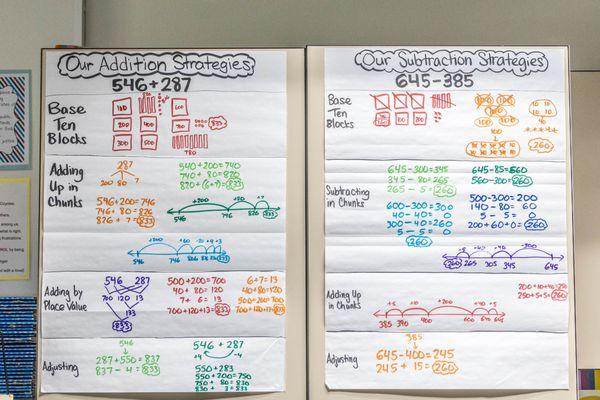 Our Addition Strategies
546+287
Base
Ten
Blocks
100
200
400
300
500
600
700
780
833
Adding
Up in
Chunks
287
200 80 7
546+200=746
746+80=826
826+7=833
540+200=740
740+80=820
820+(6+7)=833
+200 +80 +7
546 746 826 833
+200
546 746
Adding by
Place Value
546 287
700 120 13
833
500+200=700
40+80=120
7+6=13
700+120+13=833
6+7=13
40+80=120
500+200=700
700+120+13=833
Adjusting
546
287+550=837
837-4=833
546+287
+4 -4
550+283
550+200=750
750+80=830
830+3=833
Our Subtraction Strategies
645-385
Base
Ten
Blocks
100 200
100
260
Subtracting
in Chunks
645-300=345
345-80=265
265-5=260
645-85=560
560-300=260
600-300=300
40-40=0
300-40=260
5-5=0
260
500-300=200
140-80=60
5-5=0
200+60+0=260
-5 -40 -40 -300
260 265 305 345 645
Adding Up
in Chunks
+5 +10 +200 +40 +5
385 390 400 600 640 645
200+10+40=250
250+5+5=260
Adjusting
385
645-400=245
245+15=260